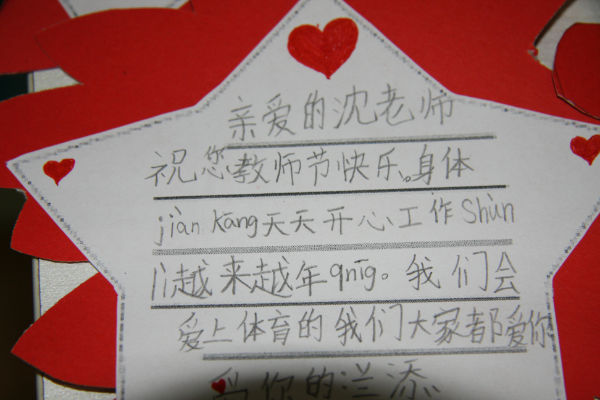 亲爱的沈老师
祝您教师节快乐。身体
jiàn Kāng天天开心工作Shùn
lì越来越年qnīg。我们会
爱上体育的我们大家都爱你
你的